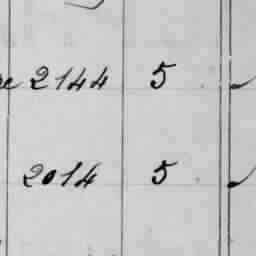 2144 5
2014 5